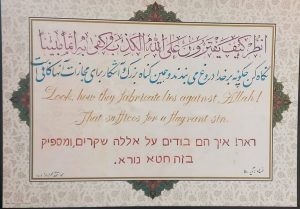 انظر كيف يفترون على الله الكذب وكفى به إثما مبينا
نگاه کن چگونه بر خدا دروغ می بندند و همین گناه بزرگ و آشکار برای مجازات آنها کافی است
Look, how they fabricate lies against Allah!
That suffices for a flagrant sin.
ראו! איך הם בודים על אללה שקרים,ומספיק
בזה חטא נורא.